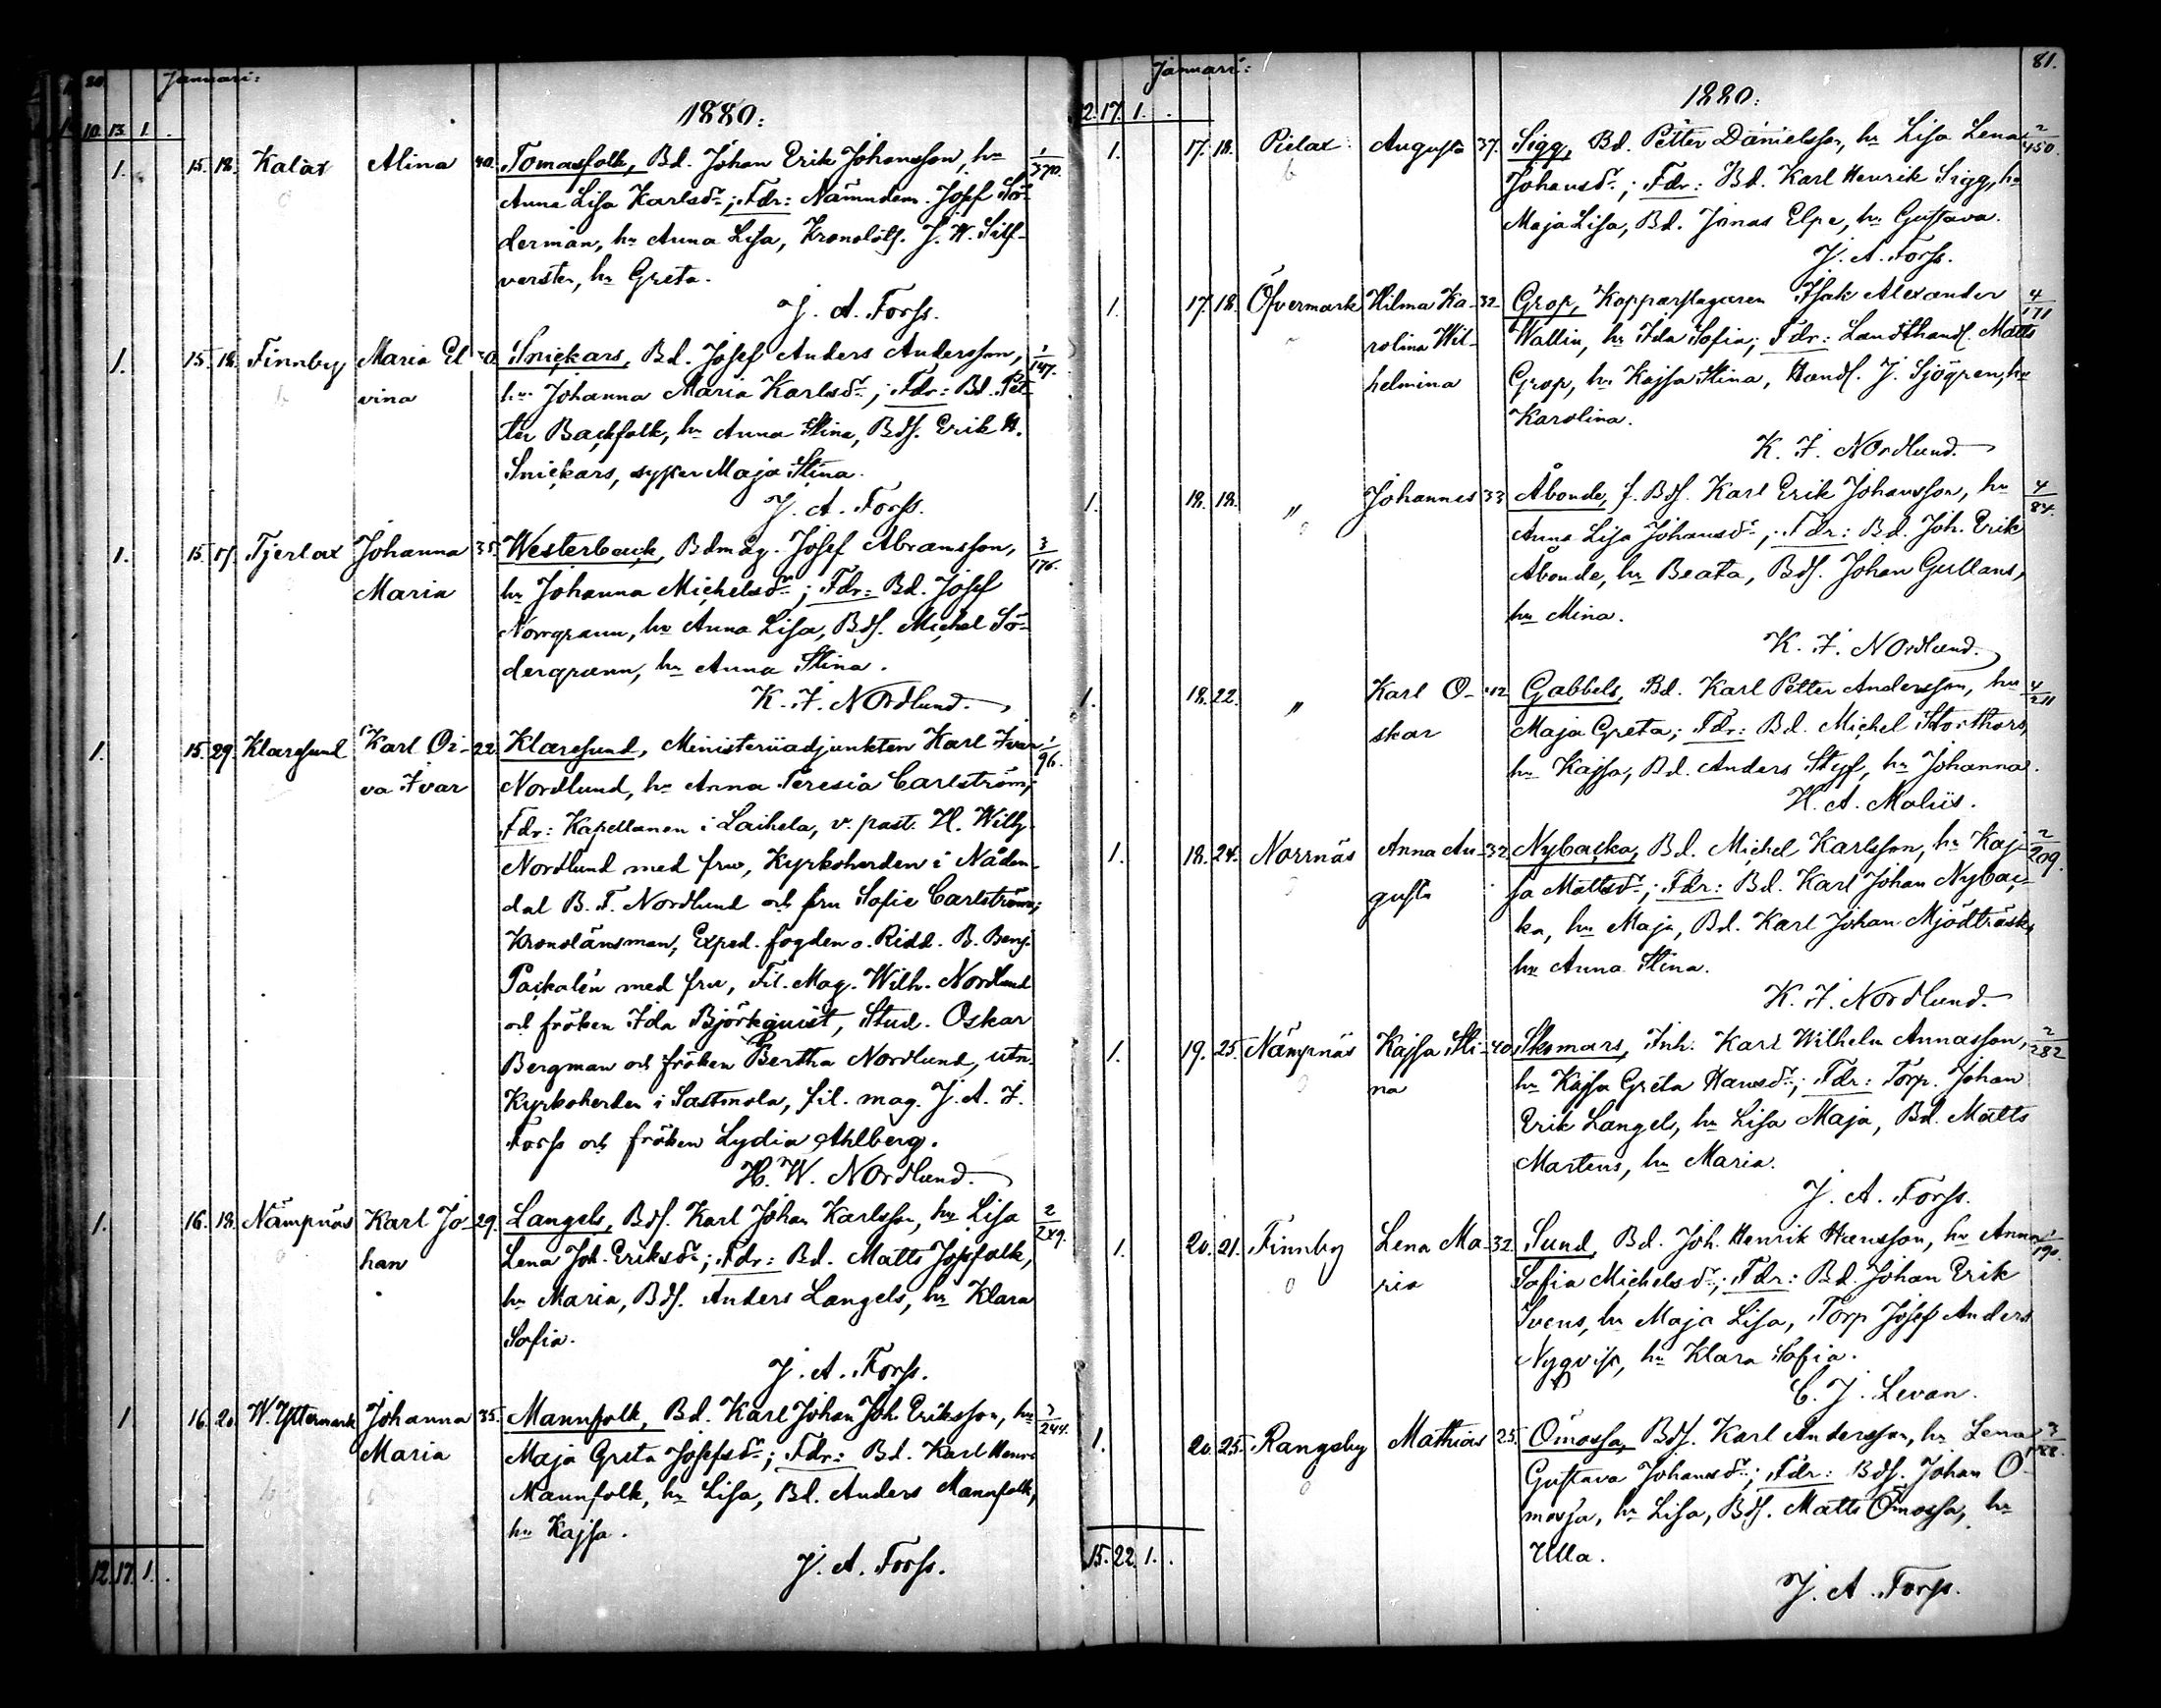 20. Januari:
1880:
10. 13. 1. .
1. 15. 18. Kalax Alina 40. Tomasfolk, Bd. Johan Erik Johansson, hu 1/370.
Anna Lisa Karlsdr; Fdr: Nämndem. Josef Sö-
derman, hu Anna Lisa, Kronolots. J. W. Silf-
versten, hu Greta.
J. A. Forss.
1. 15. 18. Finnby Maria El- 30. Snickars, Bd. Josef Anders Andersson, 1/147.
vina hu Johanna Maria Karlsdr; Fdr: Bd. Pet-
ter Backfolk, hu Anna Stina, Bds. Erik H.
Snickars, syster Maja Stina.
J. A. Forss.
1. 15. 17. Tjerlax Johanna 35. Westerback, Bdmåg. Josef Abramsson, 3/176.
Maria hu Johanna Michelsdr; Fdr: Bd. Josef
Norrgrann, hu Anna Lisa, Bds. Michel Sö-
dergrann, hu Anna Stina.
K. I. Nordlund.
1. 15. 29. Klaresund Karl Oi- 22. Klaresund, Ministeriiadjunkten Karl Ivar 1/96.
va Ivar Nordlund, hu Anna Teresia Carlström;
Fdr: Kapellanen i Laihela, v. past. H. Wilh.
Nordlund med fru, Kyrkoherden i Nåden-
dal B. F. Nordlund och fru Sofie Carlström;
Kronolänsman, Exped. fogden o. Ridd. B. Benj.
Packalén med fru, Fil. Mag. Wilh. Nordlund
och fröken Ida Björkquist, Stud. Oskar
Bergman och fröken Bertha Nordlund, utn.
Kyrkoherden i Sastmola, fil. mag. J. A. I.
Forss och fröken Lydia Ahlberg.
H. W. Nordlund.
1. 16. 18. Nämpnäs Karl Jo- 29. Langels, Bds. Karl Johan Karlsson, hu Lisa 2/249.
han Lena Joh. Eriksdr; Fdr: Bd. Matts Jossfolk,
hu Maria, Bds. Anders Langels, hu Klara
Sofia.
J. A. Forss.
1 16. 20. W. Yttermark Johanna 35. Mannfolk, Bd. Karl Johan Joh. Eriksson, hu 3/244.
Maria Maja Greta Josefsdr; Fdr: Bd. Karl Henr.
Mannfolk, hu Lisa, Bd. Anders Mannfolk,
hu Kajsa.
J. A. Forss.
12. 17. 1. .
Januari: 81.
1880:
12. 17. 1. .
1. 17. 18. Pielax Augusta 37. Sigg, Bd. Petter Danielsson, hu Lisa Lena 2/450.
Johansdr; Fdr: Bd. Karl Henrik Sigg, hu
Maja Lisa, Bd. Jonas Elpe, hu Gustava.
J. A. Forss.
1. 17. 18. Öfvermark Hilma Ka- 32. Grop, Kopparslagaren Isak Alexander 4/171
rolina Wil- Wallin, hu Ida Sofia; Fdr: Landthandl. Matts
helmina Grop, hu Kajsa Stina, Handl. J. Sjögren, hu
Karolina.
K. I. Nordlund.
1. 18. 18. " Johannes 33 Åbonde, f. Bds. Karl Erik Johansson, hu 4/84.
Anna Lisa Johansdr; Fdr: Bd. Joh. Erik
Åbonde, hu Beata, Bds. Johan Gullans,
hu Mina.
K. I. Nordlund.
1. 18. 22. " Karl O- 42 Gabbels, Bd. Karl Petter Andersson, hu 4/211
skar Maja Greta; Fdr: Bd. Michel Storthors,
hu Kajsa, Bd. Anders Styf, hu Johanna.
H. A. Maliis.
1. 18. 24. Norrnäs Anna Au- 32 Nybacka, Bd. Michel Karlsson, hu Kaj- 2/209.
gusta sa Mattsdr; Fdr: Bd. Karl Johan Nybac-
ka, hu Maja, Bd. Karl Johan Mjödträsk,
hu Anna Stina.
K. I. Nordlund.
1. 19. 25. Nämpnäs Kajsa Sti- 40. Skomars, Inh. Karl Wilhelm Annasson, 2/282
na hu Kajsa Greta Hansdr; Fdr: Torp. Johan
Erik Langels, hu Lisa Maja, Bd. Matts
Martens, hu Maria.
J. A. Forss.
1. 20. 21. Finnby Lena Ma- 32. Sund, Bd. Joh. Henrik Hansson, hu Anna 1/190.
ria Sofia Michelsdr; Fdr: Bd. Johan Erik
Svens, hu Maja Lisa, Torp Josef Anders
Nyqvist, hu Klara Sofia.
C. J. Levan.
1. 20. 25. Rangsby Mathias 25. Ömossa, Bds. Karl Andersson, hu Lena 3/188.
Gustava Johansdr; Fdr: Bds. Johan Ö-
mossa, hu Lisa, Bds. Matts Ömossa, hu
Ulla.
J. A. Forss.
15. 22. 1. .